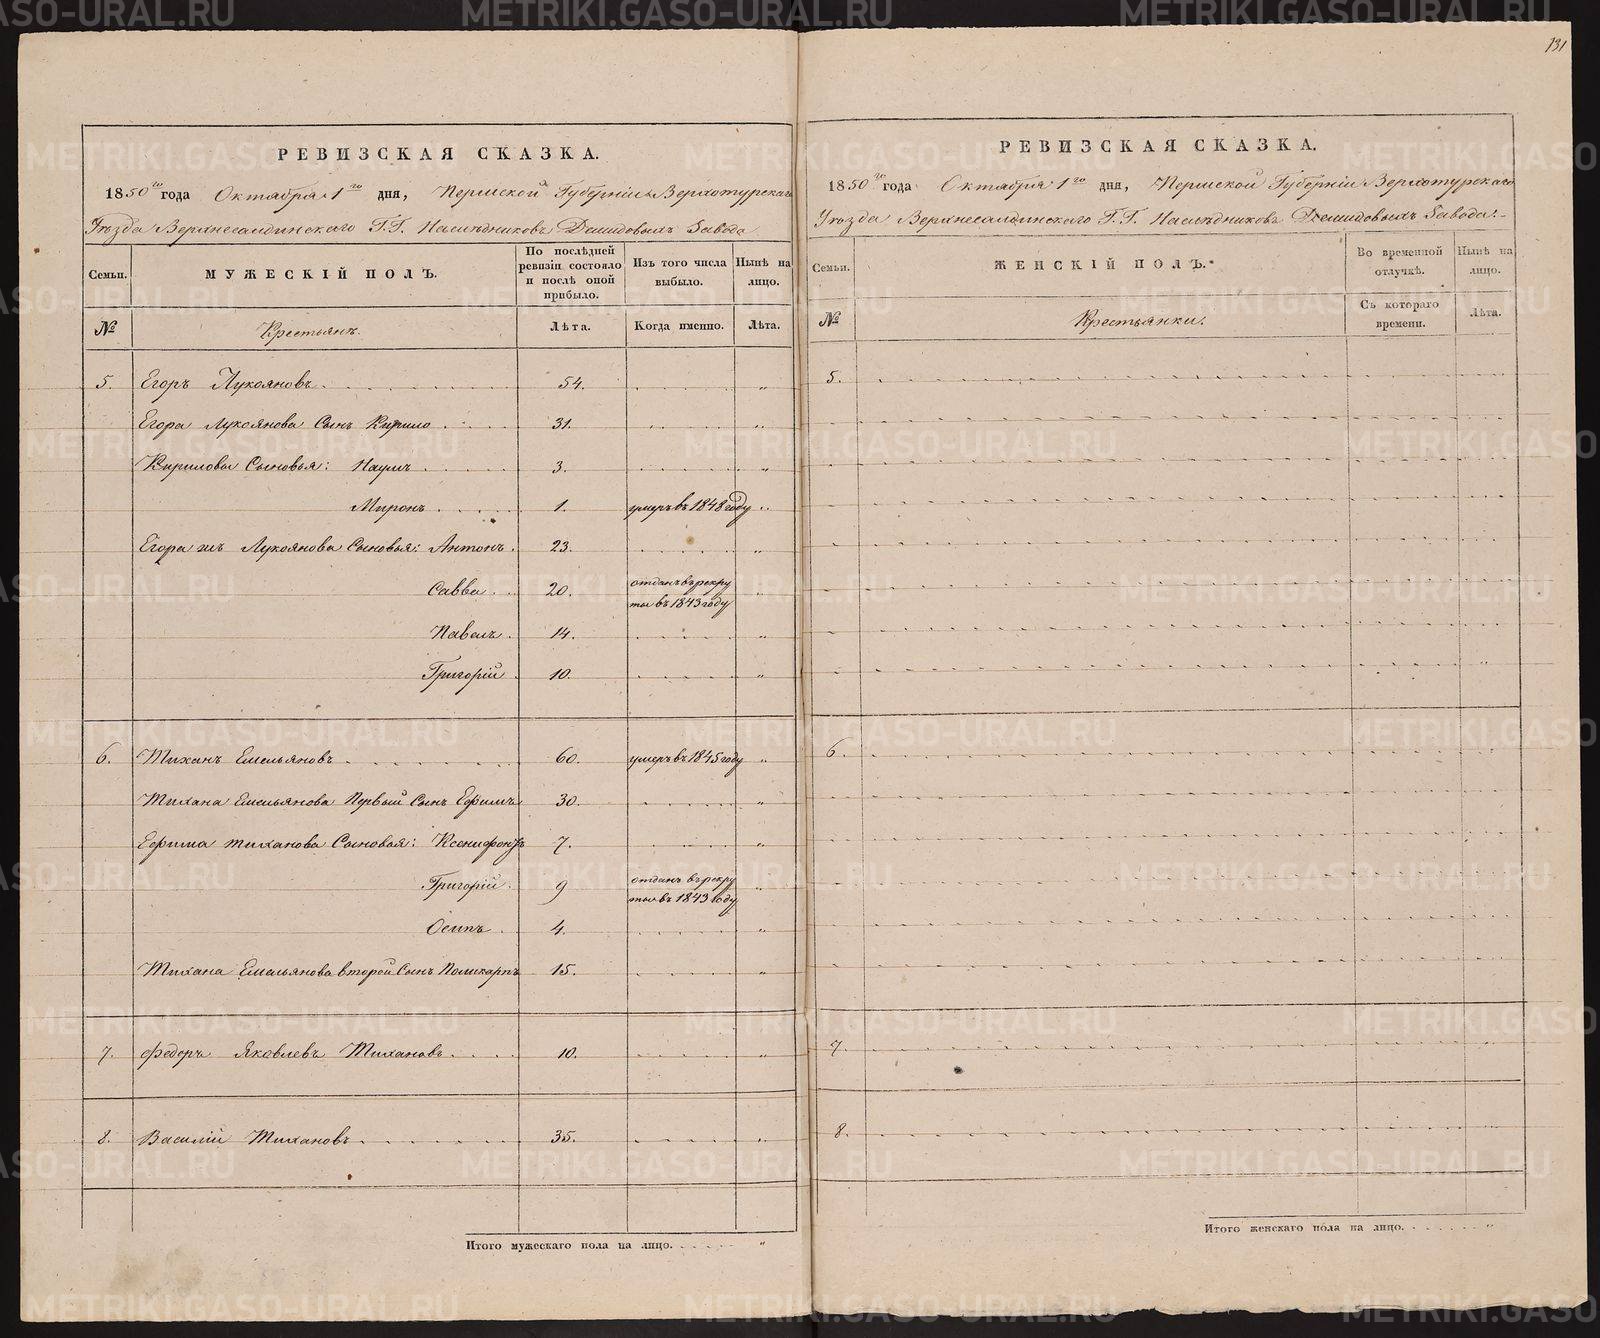 131
РЕВИЗСКАЯ СКАЗКА.
1850го года Октября 1го дня, Пермской Губерніи Верхотурскаго
Уѣзда Верхнесалдинскаго Г.Г. Наслѣдниковъ Демидовыхъ Завода
Семьи. МУЖЕСКІЙ ПОЛЪ. По послѣдней ревизіи состояло и послѣ оной прибыло. Изъ того числа выбыло. Нынѣ на лицо.
№ Крестьянъ. Лѣта. Когда именно. Лѣта.
5. Егоръ Лукояновъ 54. „
Егора Лукоянова Сынъ Кирило 31. „
Кириловы Сыновья: Наумъ 3. „
Миронъ 1. умеръ въ 1848 году „
Егора жъ Лукоянова Сыновья: Антонъ 23. „
Савва 20. отданъ въ рекру
ты въ 1843 году „
Павелъ 14. „
Григорій 10. „
6. Тиханъ Емельяновъ 60. умеръ въ 1845 году „
Тихана Емельянова Первый Сынъ Ефимъ 30. „
Ефима Тиханова Сыновья: Ксенифонтъ 7. „
Григорій 9 отданъ въ рекру
ты въ 1843 году „
Осипъ 4. „
Тихана Емельянова второй Сынъ Поликарпъ 15. „
7. Федоръ Яковлевъ Тихановъ 10. „
8. Василій Тихановъ 35. „
Итого мужескаго пола на лицо. „
РЕВИЗСКАЯ СКАЗКА.
1850го года Октября 1го дня, Пермской Губерніи Верхотурскаго
Уѣзда Верхнесалдинскаго Г.Г. Наслѣдниковъ Демидовыхъ Завода.
Семьи. ЖЕНСКІЙ ПОЛЪ. Во временной отлучкѣ. Нынѣ на лицо.
№ Крестьянки. Съ котораго времени. Лѣта.
5.
6.
7.
8.
Итого женскаго пола на лицо. „
METRIKI.GASO-URAL.RU